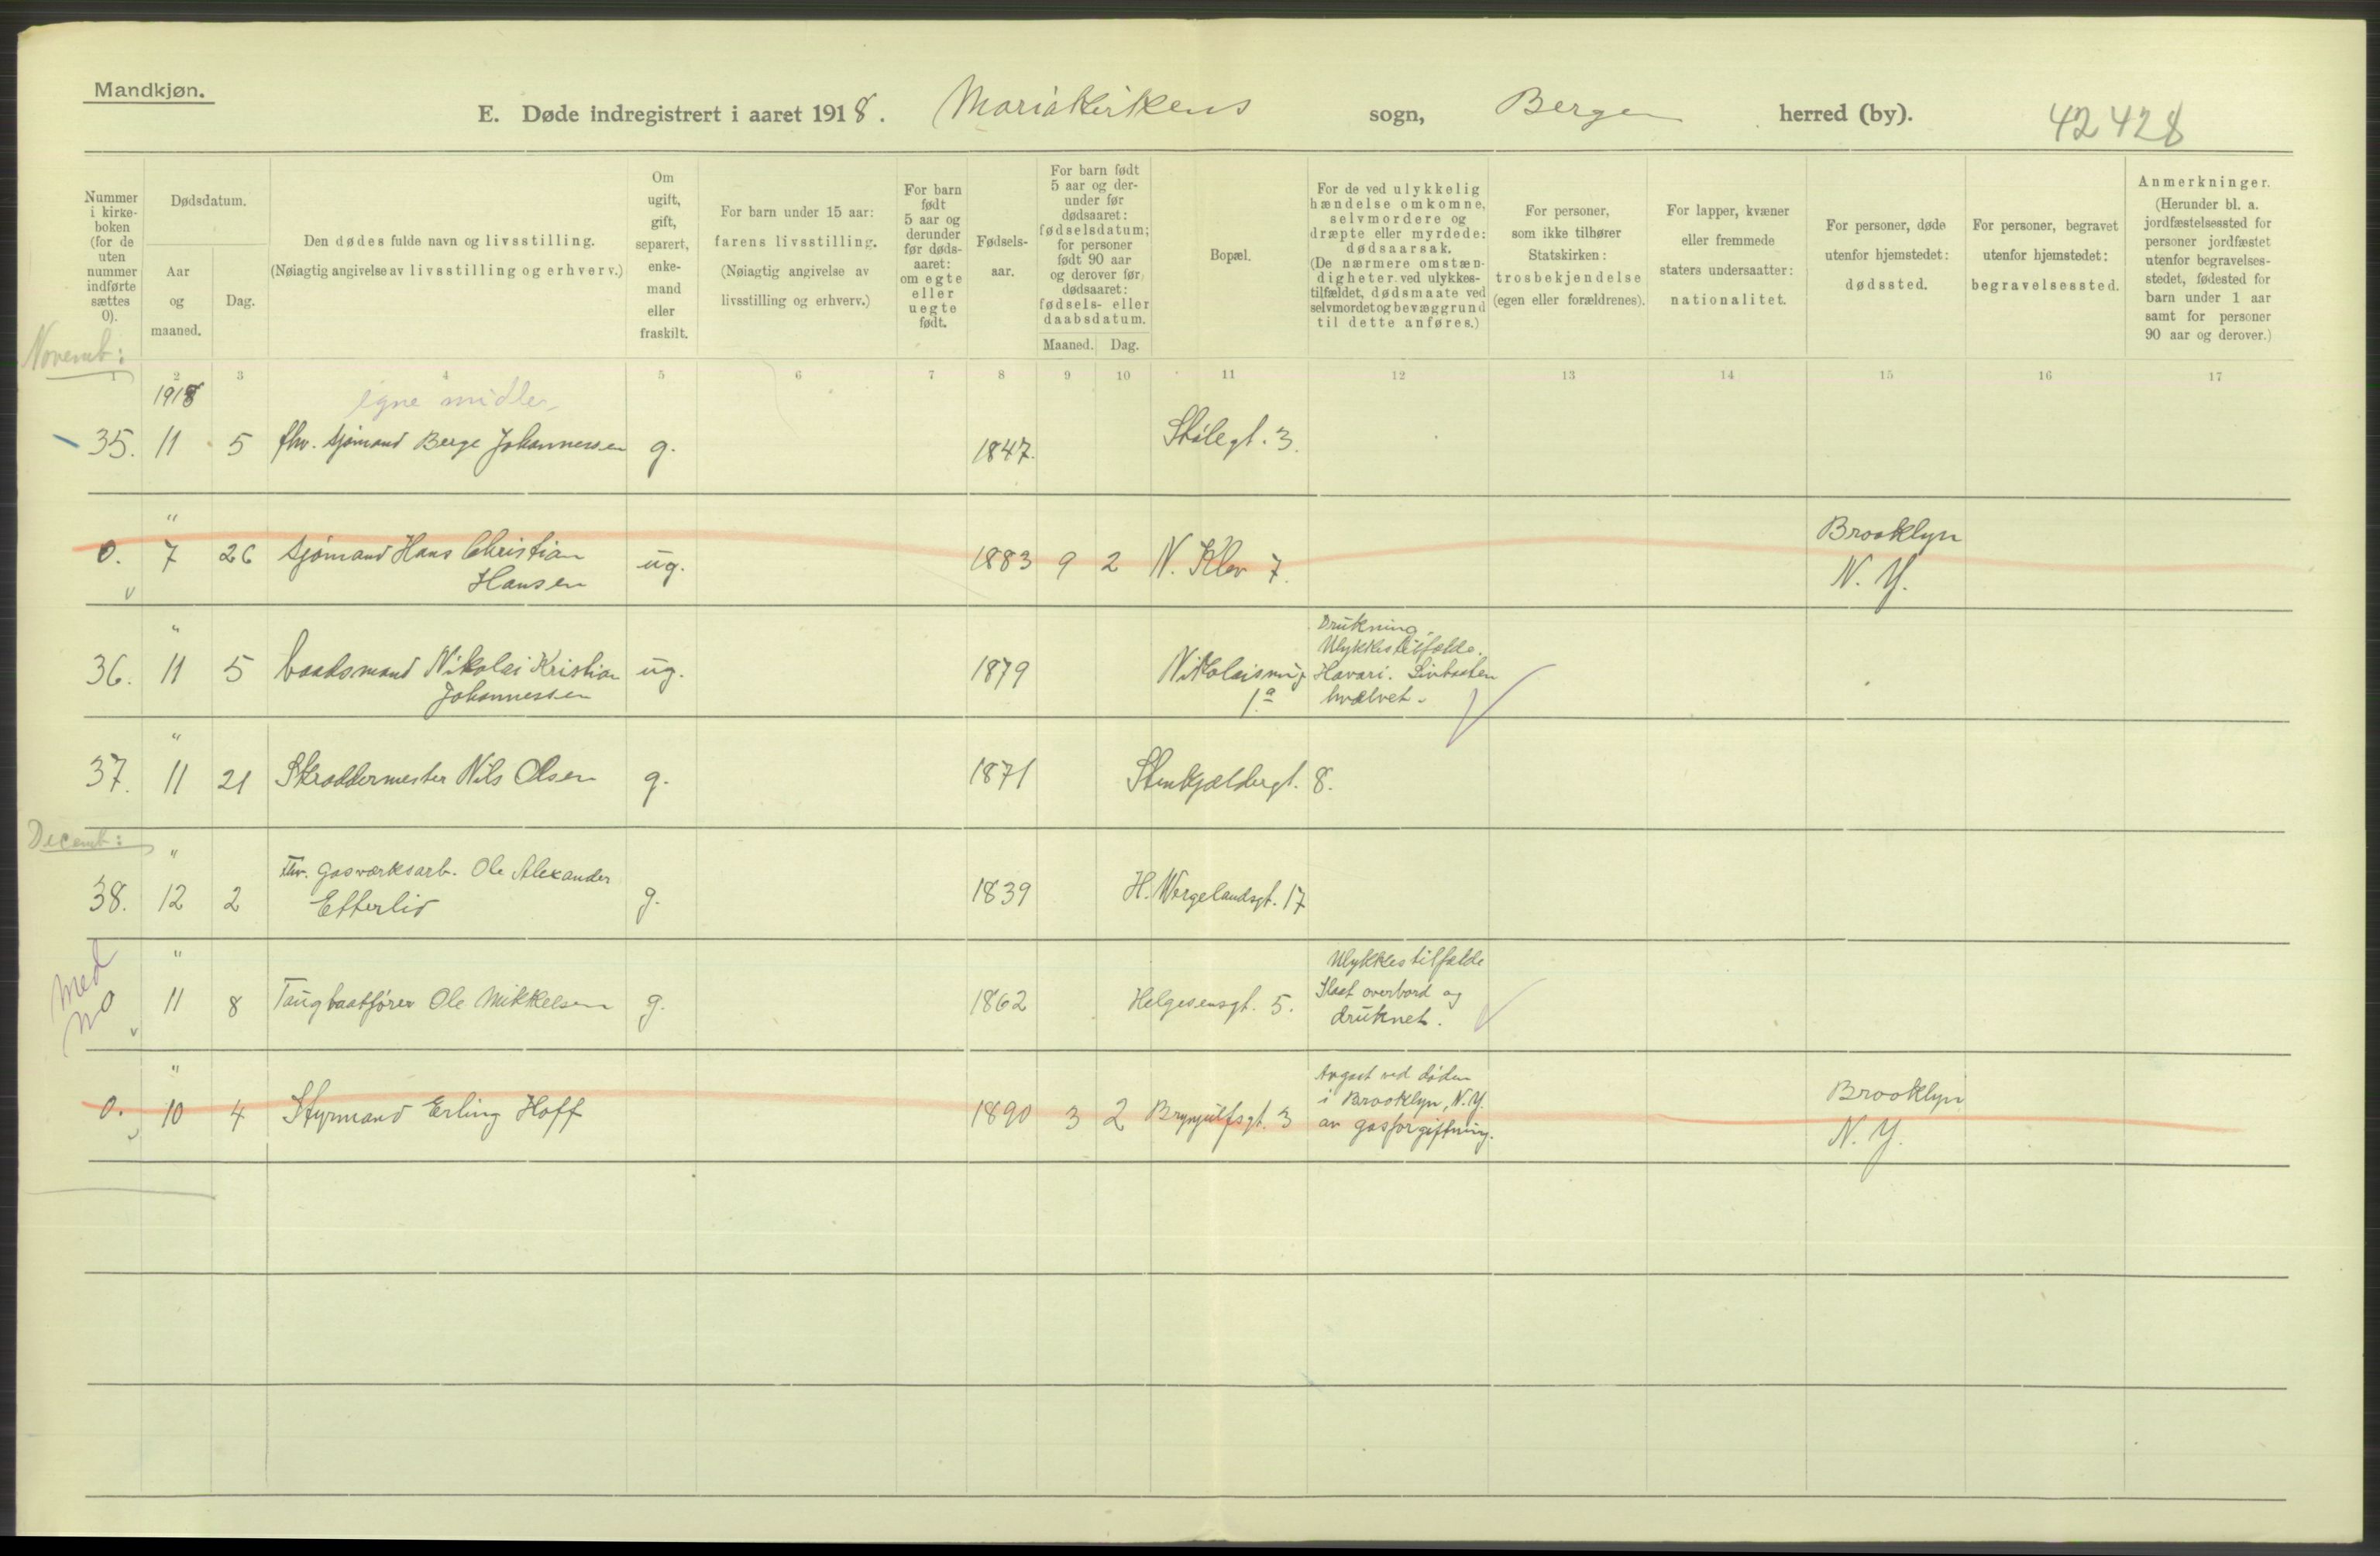 Mandkjøn.
E. Døde indregistrert i aaret 1918. Mariakirkens sogn, Bergen herred (by). 42428
Nummer i kirkeboken (for de uten nummer indførte sættes 0).
Dødsdatum.
Aar og maaned.
Dag.
Den dødes fulde navn og livsstilling.
(Nøiagtig angivelse av livsstilling og erhverv.)
Om ugift, gift, separert, enkemand eller fraskilt.
For barn under 15 aar: farens livsstilling.
(Nøiagtig angivelse av livsstilling og erhverv.)
For barn født 5 aar og derunder før dødsaaret: om egte eller uegte født.
Fødselsaar.
For barn født 5 aar og derunder før dødsaaret: fødselsdatum; for personer født 90 aar og derover før dødsaaret: fødsels- eller daabsdatum.
Maaned. Dag.
Bopæl.
For de ved ulykkelig hændelse omkomne, selvmordere og dræpte eller myrdede: dødsaarsak. (De nærmere omstændigheter ved ulykkestilfældet, dødsmaate ved selvmordet og bevæggrund til dette anføres.)
For personer, som ikke tilhører Statskirken: trosbekjendelse (egen eller forældrenes).
For lapper, kvæner eller fremmede staters undersaatter: nationalitet.
For personer, døde utenfor hjemstedet: dødssted.
For personer, begravet utenfor hjemstedet: begravelsessted.
Anmerkninger.
(Herunder bl. a. jordfæstelsessted for personer jordfæstet utenfor begravelsesstedet, fødested for barn under 1 aar samt for personer 90 aar og derover.)
Novemb:
1 2 3 4 5 6 7 8 9 10 11 12 13 14 15 16 17
1918 egne midler
35. 11 5 fhv. sjømand Berge Johannessen g. 1847. Stølegt. 3.
"
0. 7 26 sjømand Hans Christian Hansen ug. 1883 9 2 N. Klev 7. Brooklyn N. Y.
"
36. 11 5 baadsmand Nikolai Kristian Johannessen ug. 1879 Nikolaismug 1a Drukning. Ulykkestilfælde. Havari. Livbaaten hvælvet.
"
37. 11 21 Skræddermester Nils Olsen g. 1871 Stenkjældergt. 8.
Decemb:
"
38. 12 2 Fhv. gasværksarb. Ole Alexander Efterlid g. 1839 H. Wergelandsgt. 17
"
Med no 11 8 Taugbaatfører Ole Mikkelsen g. 1862 Helgesensgt. 5. Ulykkestilfælde Slaat overbord og druknet.
"
0. 10 4 Styrmand Erling Hoff 1890 3 2 Brynjulfsgt. 3 Avgaat ved døden i Brooklyn, N.Y. av gasforgiftning. Brooklyn N. Y.